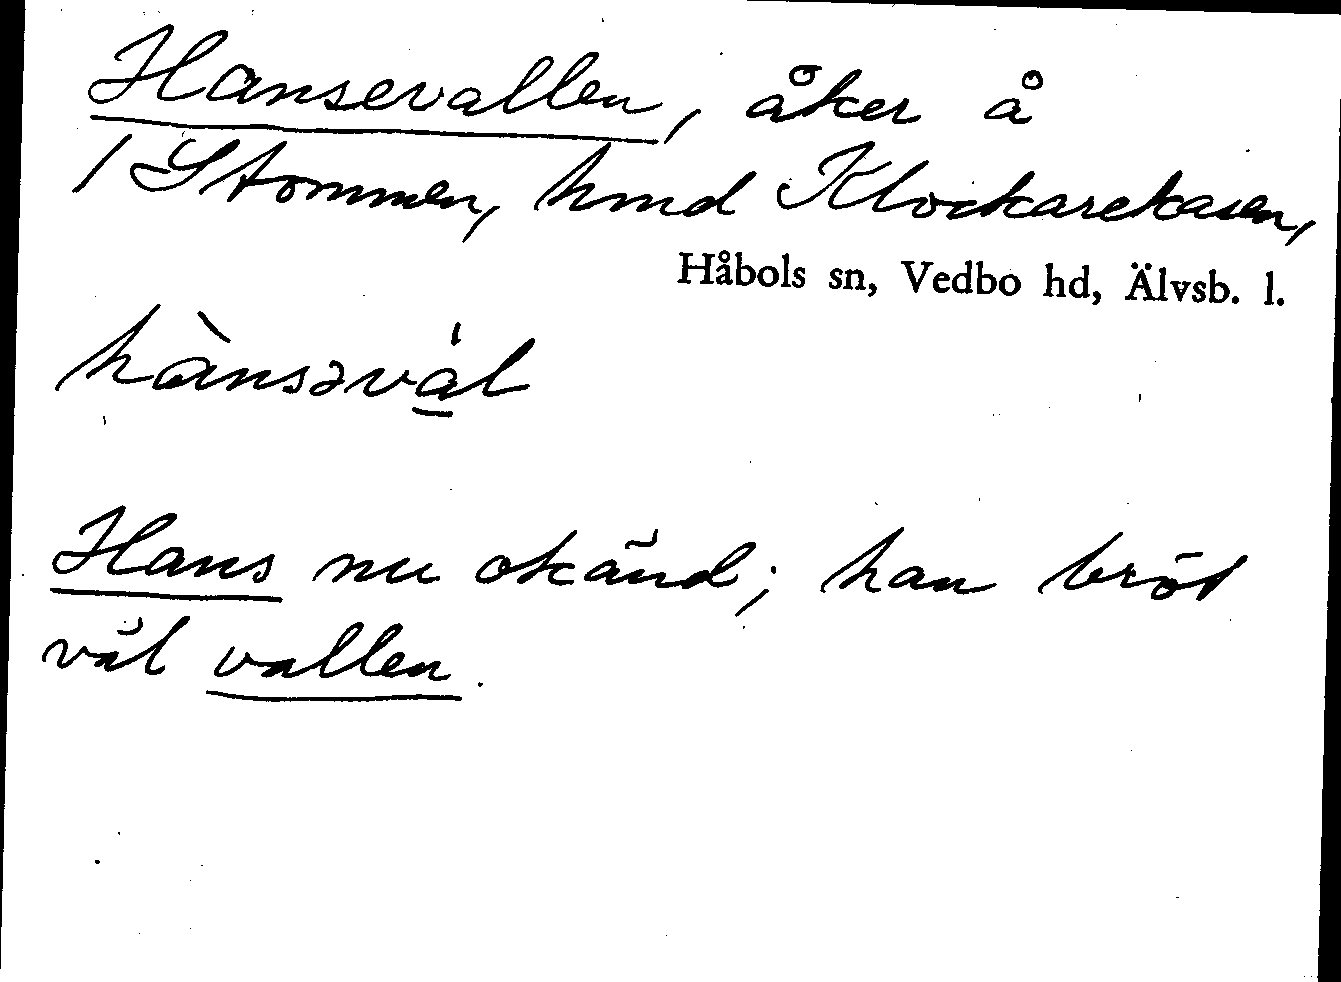 Hansevallen, åker å
1 Stommen, hmd Klockarekasen,
Håbols sn, Vedbo hd, Älvsb. l.
hànsəvá̱l
Hans nu okänd; han bröt
väl vallen.